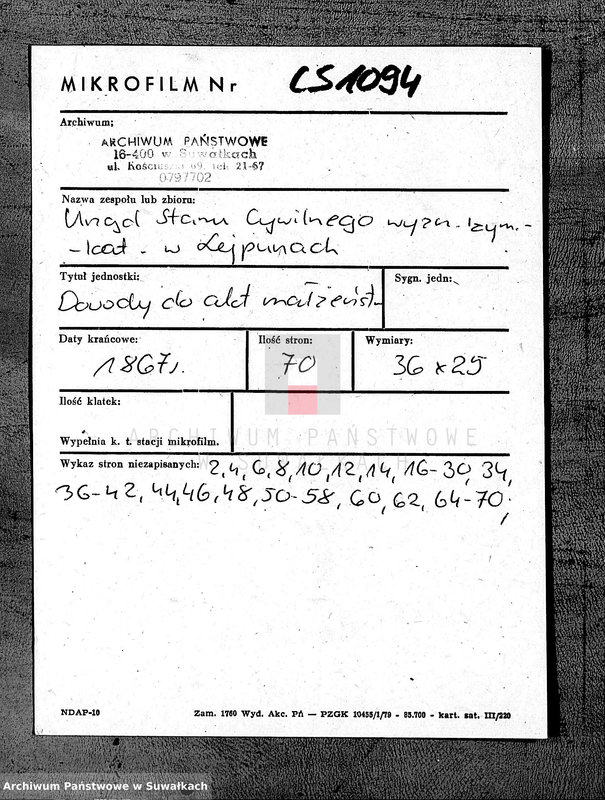 MIKROFILM Nr CS1094
Archiwum;
ARCHIWUM PAŃSTWOWE
16-400 w Suwałkach
ul. Kościuszki 69, tel. 21-67
0797702
Nazwa zespołu lub zbioru:
Urząd Stanu Cywilnego wyzn. rzym.-
-kat. w Lejpunach
Tytuł jednostki: Sygn. jedn:
Dowody do akt małżeńst.
Daty krańcowe: Ilość stron: Wymiary:
1867r. 70 36 x 25
Ilość klatek:
Wypełnia k. t. stacji mikrofilm.
ARCHIWUM PAŃSTWOWE
W SUWAŁKACH
Wykaz stron niezapisanych: 2, 4, 6, 8, 10, 12, 14, 16-30, 34,
36-42, 44, 46, 48, 50-58, 60, 62, 64-70;
NDAP-10 Zam. 1760 Wyd. Akc. Pń — PZGK 10455/1/79 - 85.700 - kart. sat. III/220
Archiwum Państwowe w Suwałkach